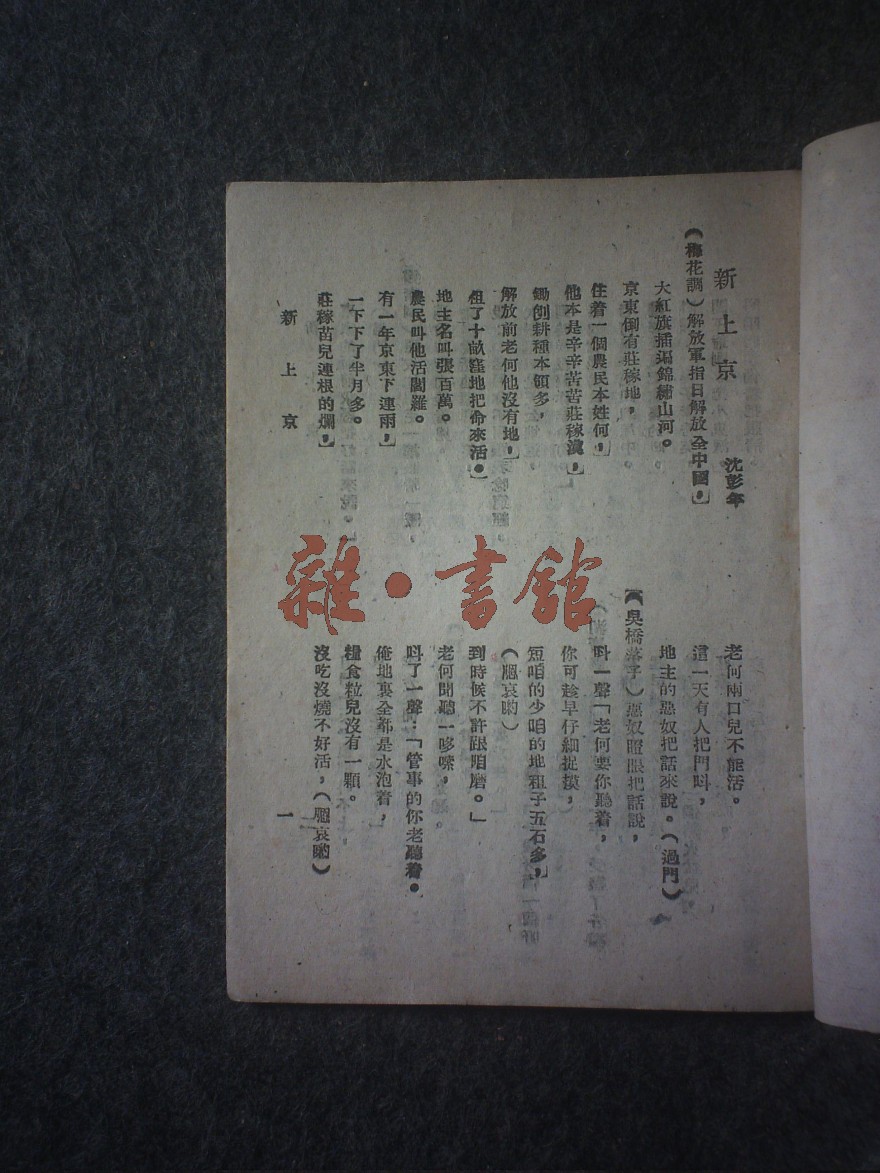 新上京
沈彭年
(梅花調)解放軍指日解放全中國,
大紅旗插遍錦繡山河。
京東倒有莊稼地,
住着一個農民本姓何,
他本是辛辛苦苦莊稼漢,
鋤刨耕種本領多,
解放前老何他沒有地,
租了十畝窪地把命來活。
地主名叫張百萬。
農民叫他活閻羅。
有一年京東下連雨,
一下下了半月多。
莊稼苗兒連根的爛,
老何兩口兒不能活。
這一天有人把門叫,
地主的惡奴把話來說。(過門)
(吳橋落子)惡奴瞪眼把話說,
叫一聲「老何要你聽着,
你可趁早仔細捉摸,
短咱的少咱的地租子五石多,
(臘哀喲)
到時候不許跟咱磨。」
老何聞聽一哆嗦,
叫了一聲:「管事的你老聽着。
俺地裏全都是水泡着,
糧食粒兒沒有一顆。
沒吃沒燒不好活,(臘哀喲)
新上京
一
雜·書館